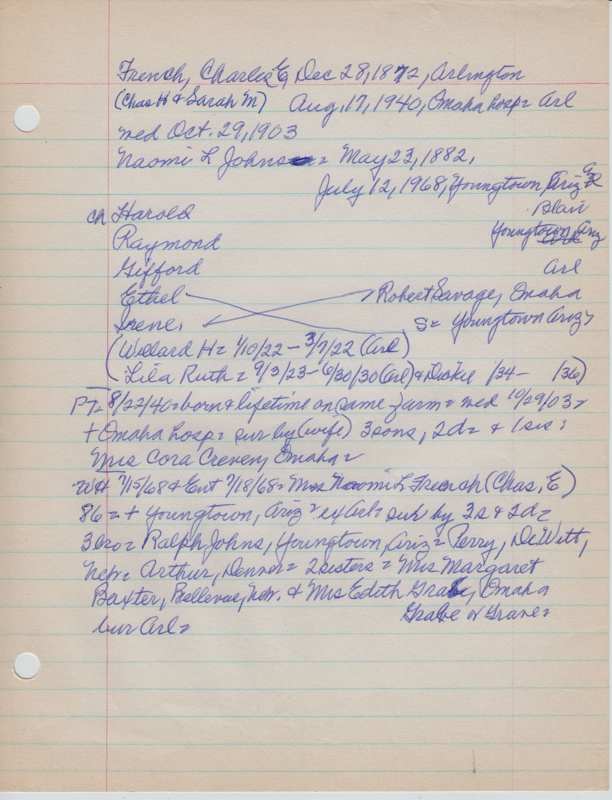 French, Charles E, Dec 28, 1872, Arlington
(Chas H & Sarah M) Aug. 17, 1940, Omaha hosp = Arl
wed Oct. 29, 1903
Naomi L Johns = May 23, 1882,
July 12, 1968, Youngtown, Ariz
ch Harold Blair
Raymond Youngtown Ariz
Gifford Arl
Ethel Robert Savage, Omaha
Irene, S = Youngtown Ariz
(Willard H = 1/10/22 - 3/7/22 (Arl)
(Lila Ruth = 9/3/23 - 6/30/30 (Arl) & Dickie 1/34 - 1/36)
PT = 8/22/40 = born & lifetime on same farm = wed 10/29/03 =
+ Omaha hosp = sur by (wife) 3 sons, 2d = & 1 sis =
Mrs Cora Creven, Omaha =
WH 7/15/68 & Ent 7/18/68 = Mrs Naomi L French (Chas. E)
86 = + Youngtown, Ariz = ex Arl = sur by 3s & 2d =
3 bro = Ralph Johns, Youngtown, Ariz = Perry, DeWitt,
Neb = Arthur, Denver = 2 sisters = Mrs Margaret
Baxter, Bellevue, Neb. & Mrs Edith Grabe, Omaha
Grabe or Grave =
bur Arl =